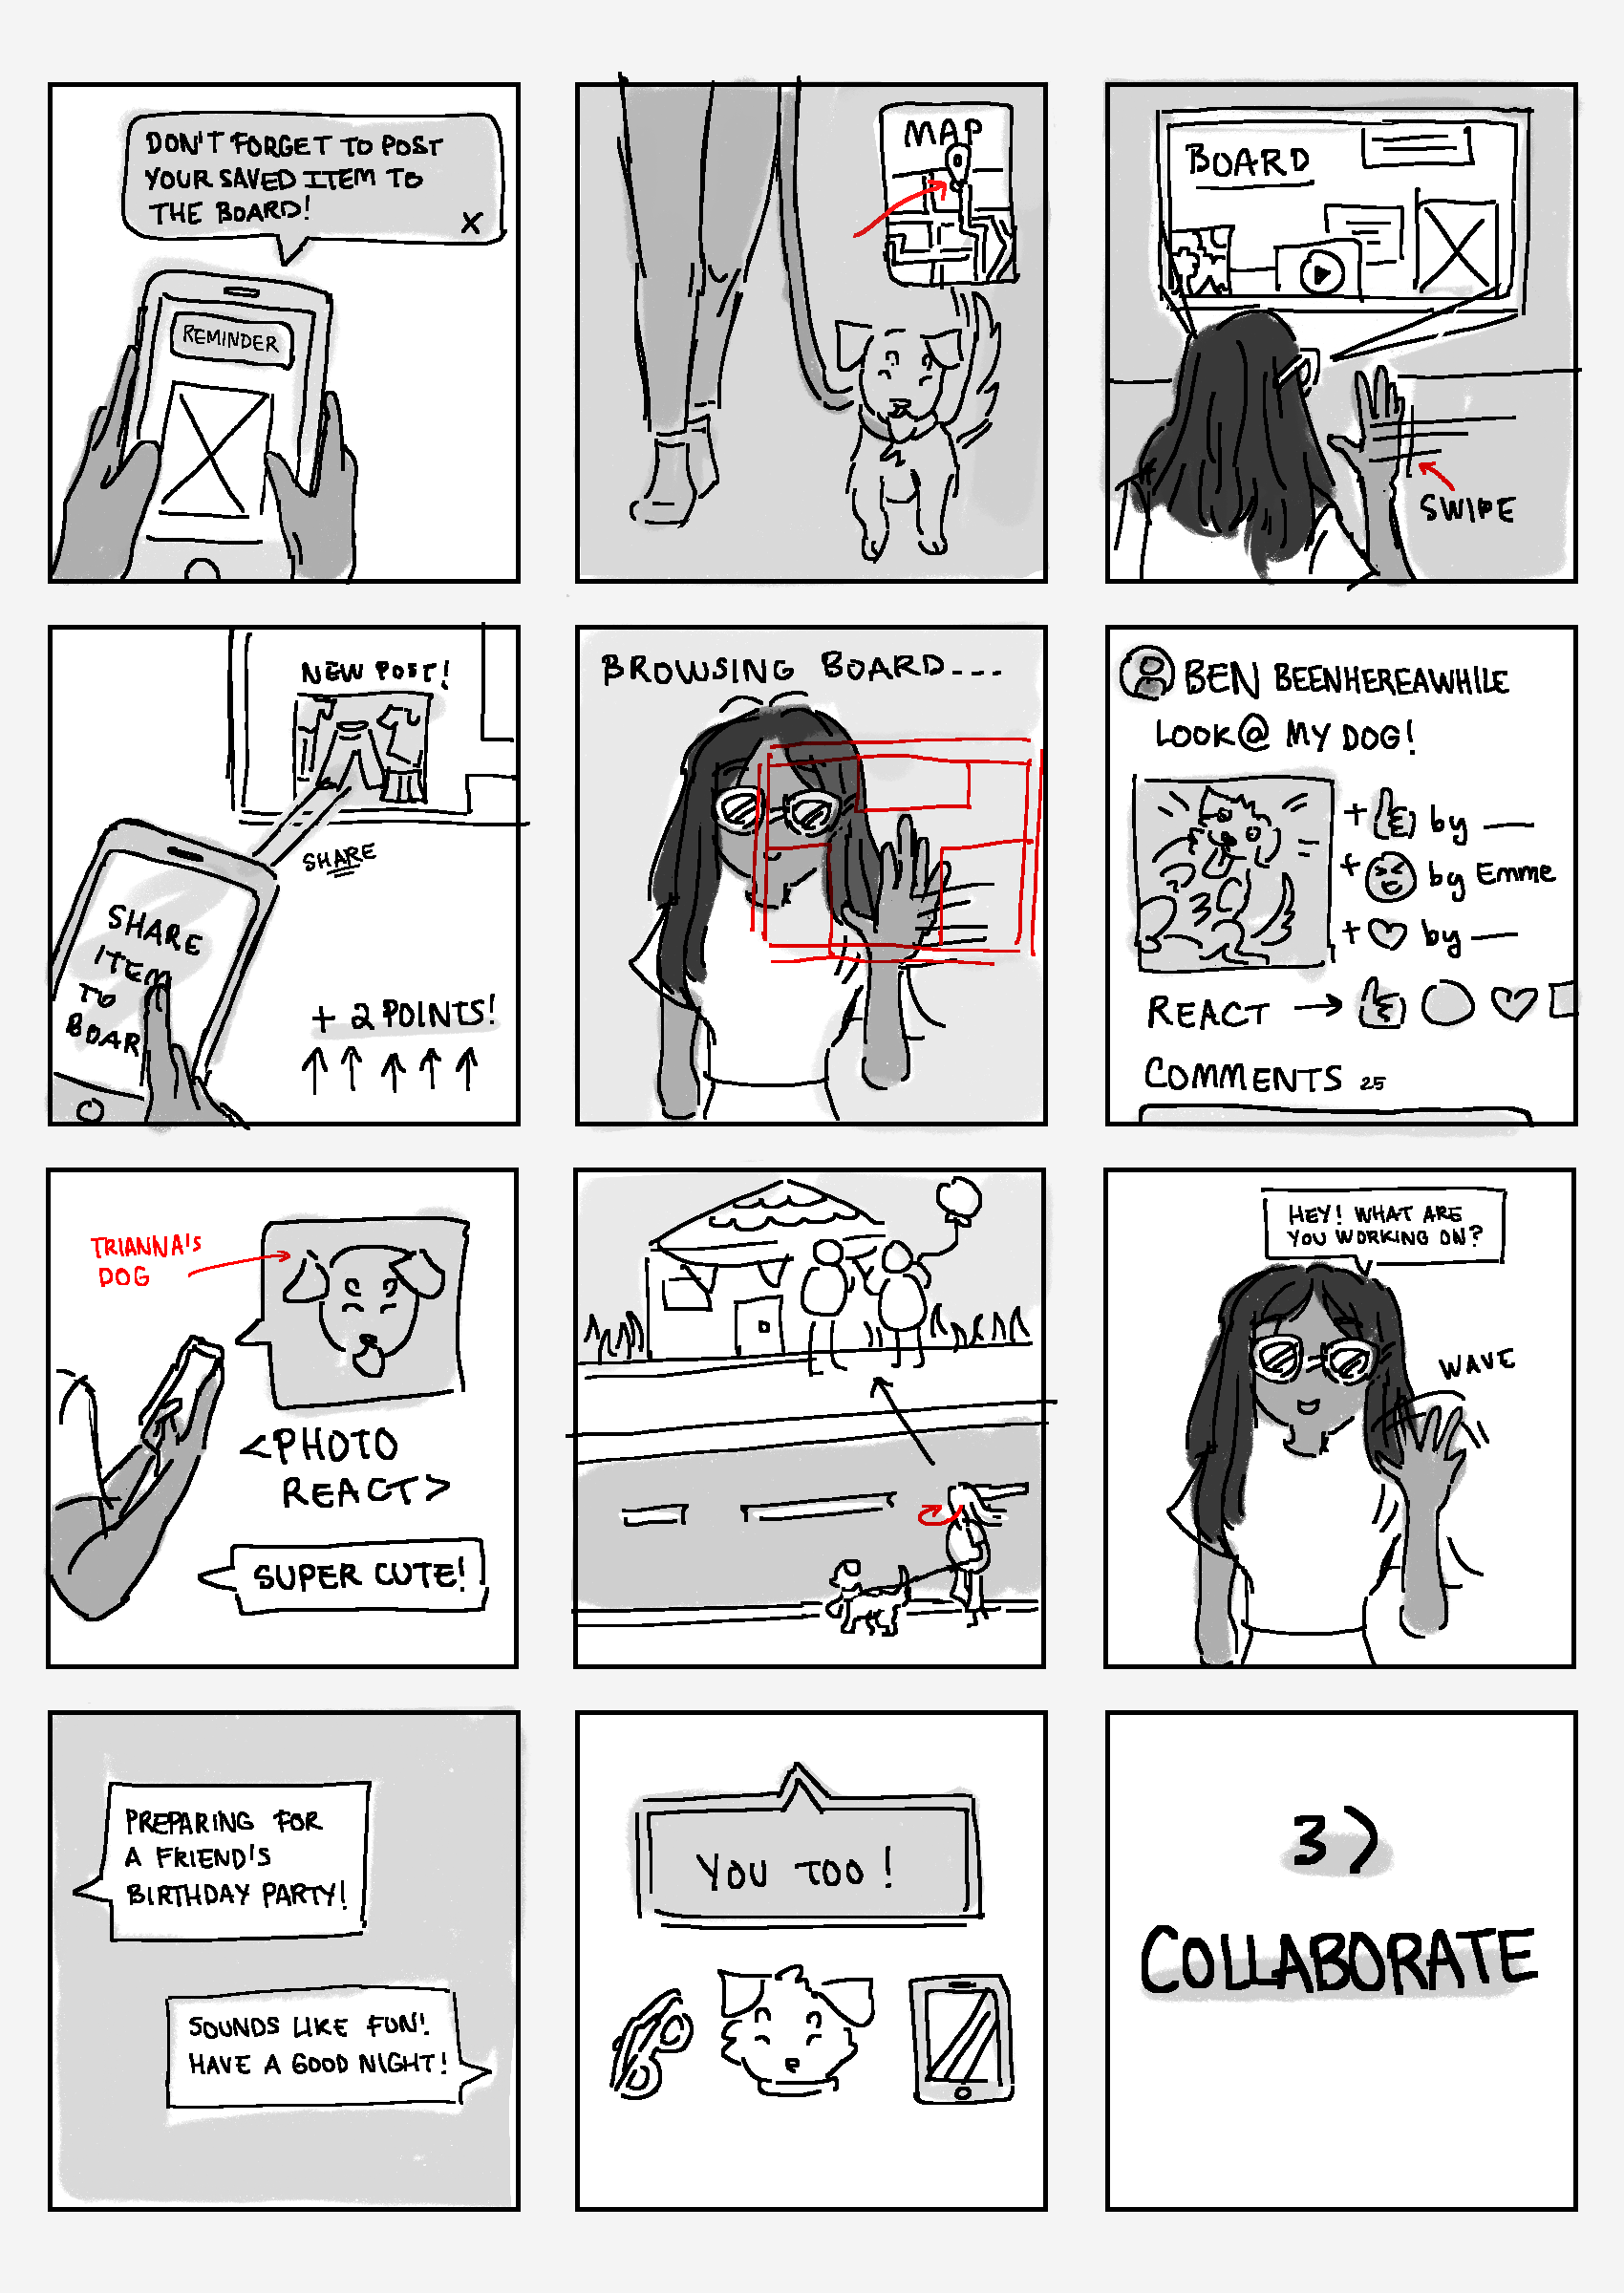 DON'T FORGET TO POST
YOUR SAVED ITEM TO
THE BOARD!
X
REMINDER
MAP
BOARD
SWIPE
NEW POST!
SHARE
SHARE
ITEM
TO
BOAR
+ 2 POINTS!
BROWSING BOARD...
BEN BEENHEREAWHILE
LOOK@ MY DOG!
+ by
+ by Emme
+ by
REACT →
COMMENTS 25
TRIANNA'S
DOG
<PHOTO
REACT>
SUPER CUTE!
HEY! WHAT ARE
YOU WORKING ON?
WAVE
PREPARING FOR
A FRIEND'S
BIRTHDAY PARTY!
SOUNDS LIKE FUN!
HAVE A GOOD NIGHT!
YOU TOO!
3)
COLLABORATE